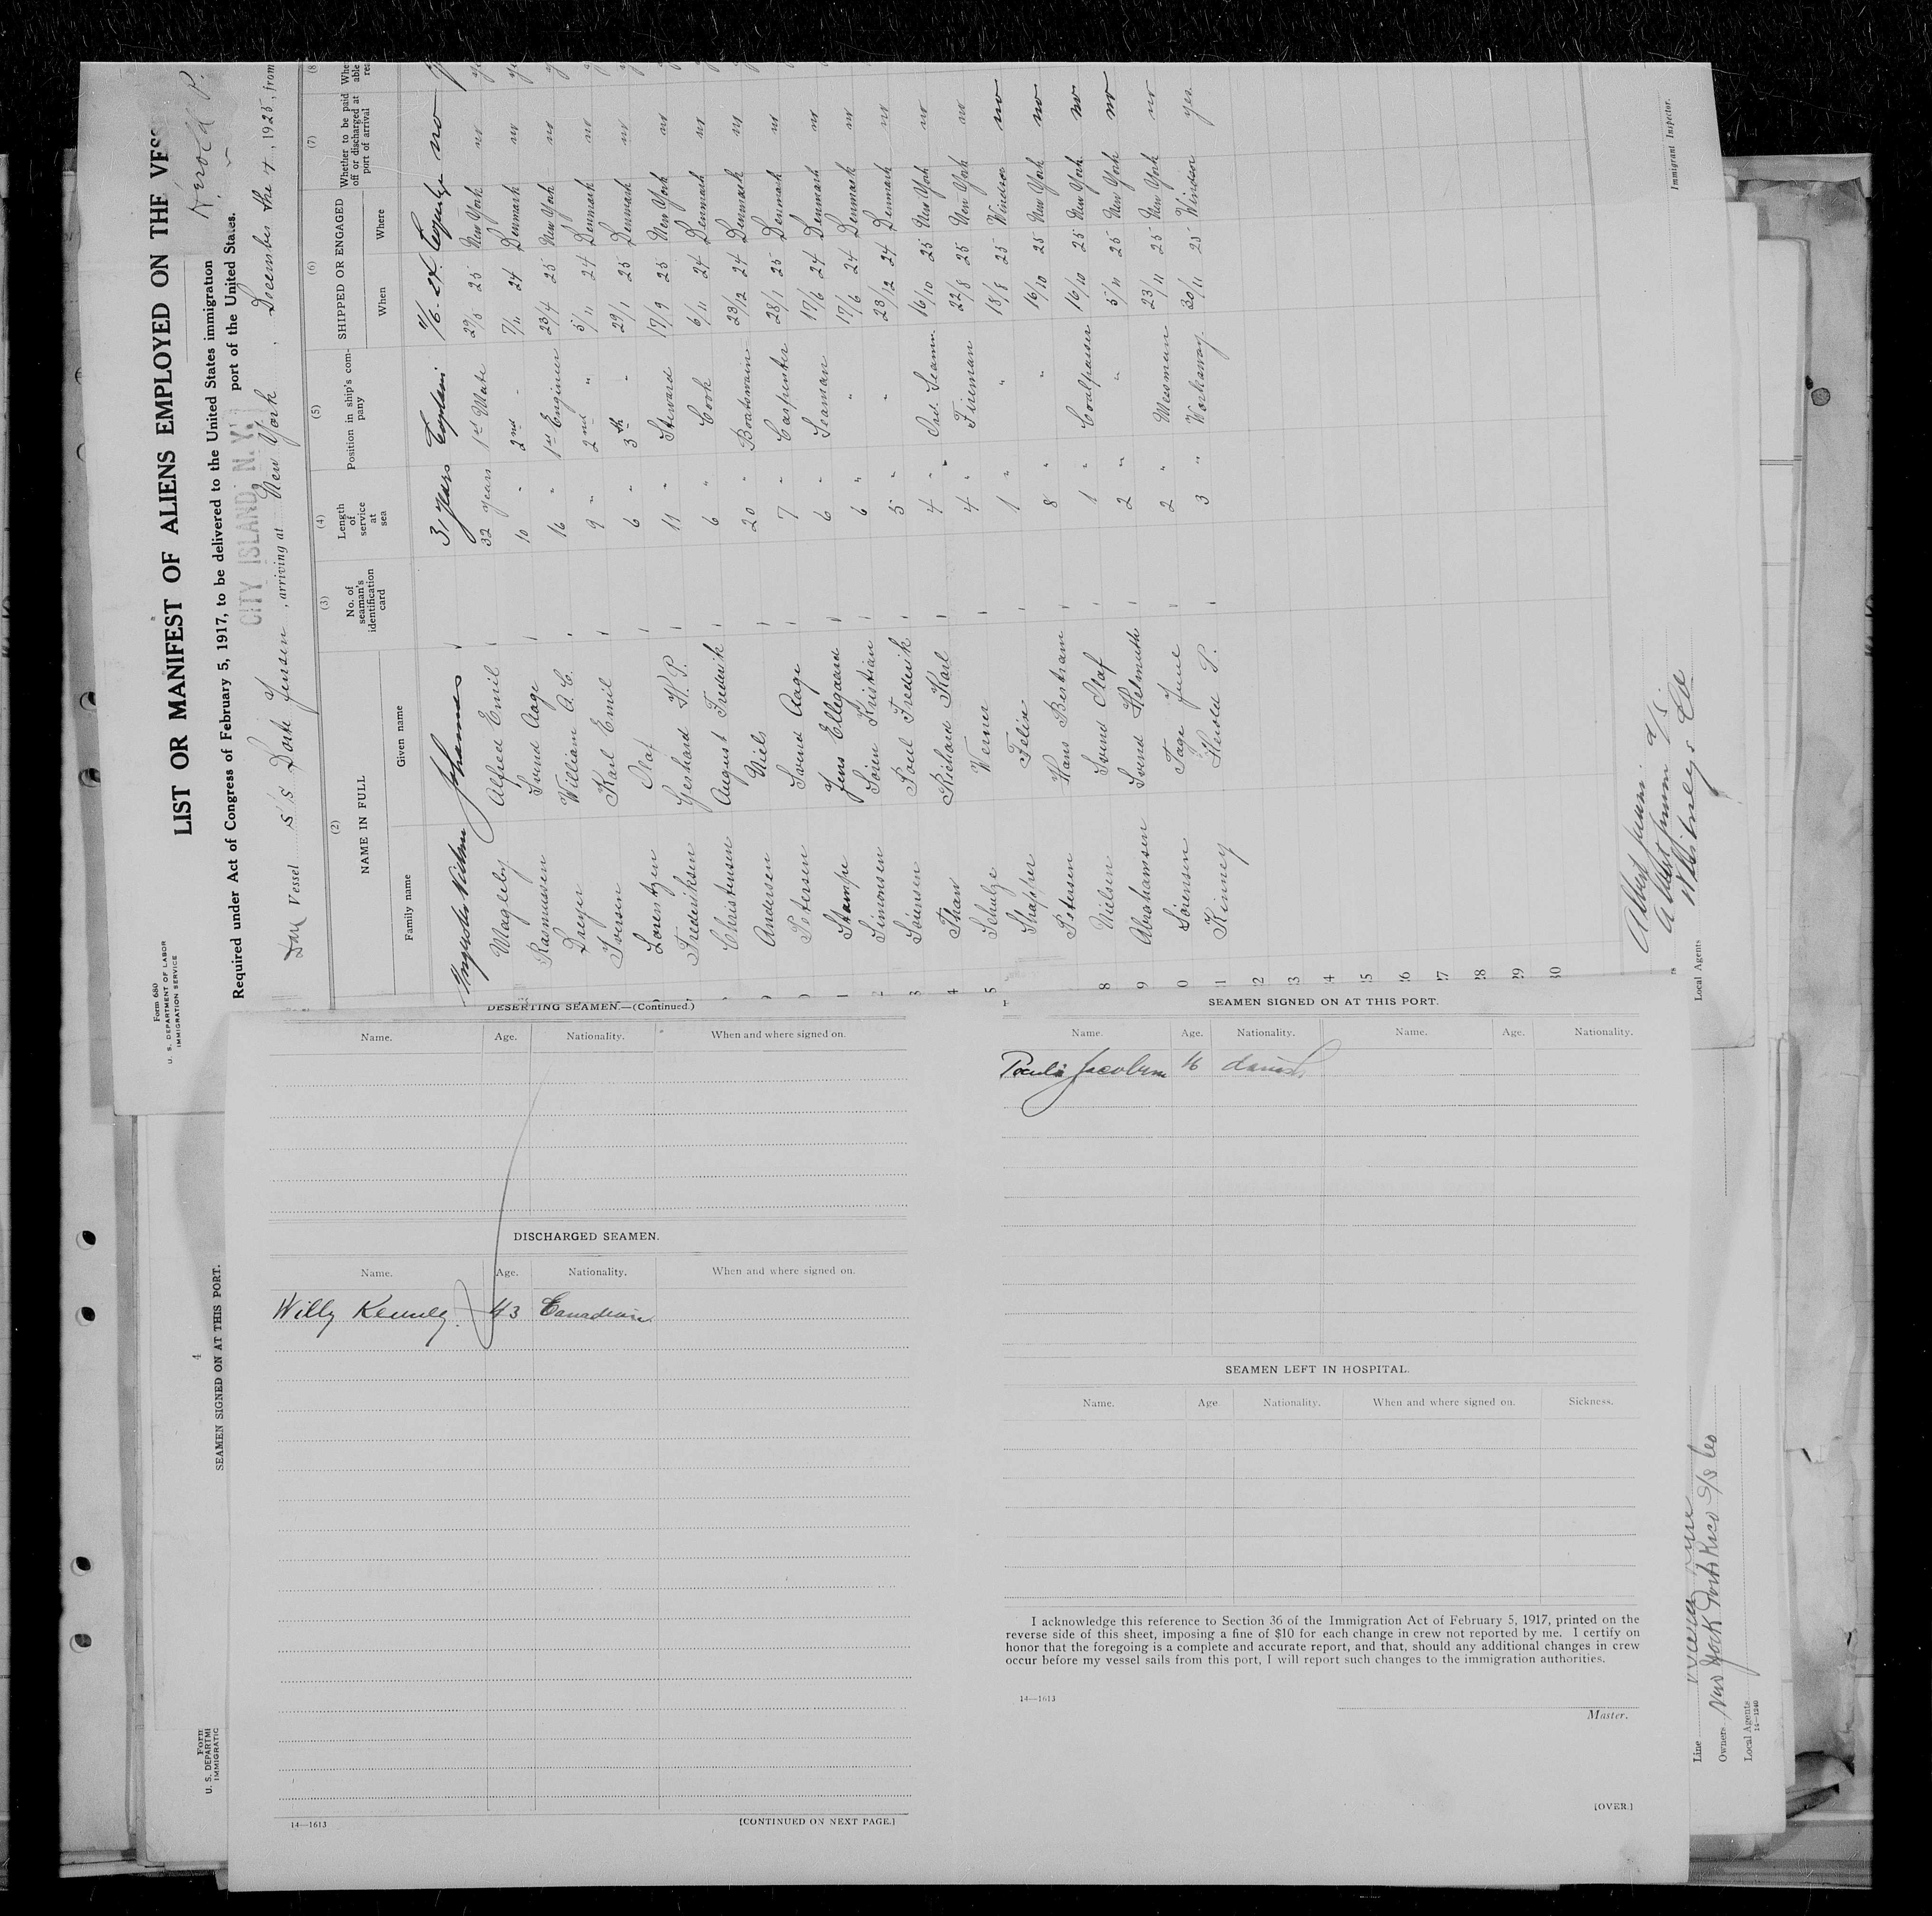 Form 680
U. S. DEPARTMENT OF LABOR
IMMIGRATION SERVICE
LIST OR MANIFEST OF ALIENS EMPLOYED ON THE VES
Herold P.
Required under Act of Congress of February 5, 1917, to be delivered to the United States immigration
port of the United States.
CITY ISLAND, N. Y.
Vessel S/S Dorte Jensen, arriving at New York, December the 4, 1925, from
(2) (3) (4) (5) (6) (7) (8
NAME IN FULL
Family name Given name
No. of seaman's identification card
Length of service at sea
Position in ship's company
SHIPPED OR ENGAGED
When Where
Whether to be paid off or discharged at port of arrival
Johannes 31 years Captain no
Magleby Alfred Emil 32 years 1st Mate 29/5 25 New York no
Rasmussen Svend Aage 10 " 2nd - 7/11 24 Denmark no
Dreyer William A. C. 16 " 1st Engineer 23/4 25 New York no
Iversen Karl Emil 9 " 2nd " 5/11 24 Denmark no
Lorentzen Olaf 6 " 3th - 29/1 25 Denmark no
Frederiksen Gerhard H. P. 11 " Steward 17/9 25 New York no
Christensen August Frederik 6 " Cook 6/11 24 Denmark no
Andersen Niels 20 " Boatswain 23/12 24 Denmark no
Petersen Svend Aage 7 " Carpenter 28/1 25 Denmark no
Stampe Jens Ellegaard 6 " Seaman 17/6 24 Denmark no
Simonsen Sören Kristian 6 " " 17/6 24 Denmark no
Sörensen Poul Frederik 5 " " 23/12 24 Denmark no
Thaw Richard Karl 4 " Ord. Seaman 16/10 25 New York no
Schulze Werner 4 " Fireman 22/8 25 New York no
Shapper Felix 1 " " 18/8 25 Windsor no
Petersen Hans Bertram 8 " " 16/10 25 New York no
Nielsen Svend Olaf 1 " Coalpasser 16/10 25 New York no
Abrahamsen Svend Helmuth 2 " " 5/11 25 New York no
Sörensen Tage Juul 2 " Messman 23/11 25 New York no
Kinney Herold P. 3 " Workaway 30/11 25 Windsor yes
Immigrant Inspector.
Local Agents
DESERTING SEAMEN.—(Continued.)
Name. Age. Nationality. When and where signed on.
DISCHARGED SEAMEN.
Name. Age. Nationality. When and where signed on.
Willy Kenney. 43 Canadian
14—1613
[CONTINUED ON NEXT PAGE.]
SEAMEN SIGNED ON AT THIS PORT.
Name. Age. Nationality. Name. Age. Nationality.
Jacobsen 16 danish
SEAMEN LEFT IN HOSPITAL.
Name. Age. Nationality. When and where signed on. Sickness.
I acknowledge this reference to Section 36 of the Immigration Act of February 5, 1917, printed on the
reverse side of this sheet, imposing a fine of $10 for each change in crew not reported by me. I certify on
honor that the foregoing is a complete and accurate report, and that, should any additional changes in crew
occur before my vessel sails from this port, I will report such changes to the immigration authorities.
14—1613
Master.
[OVER.]
4
SEAMEN SIGNED ON AT THIS PORT.
Form
U. S. DEPARTME
IMMIGRATIO
Line
Owners New York Porto Rico S/S Co
Local Agents
14—1240